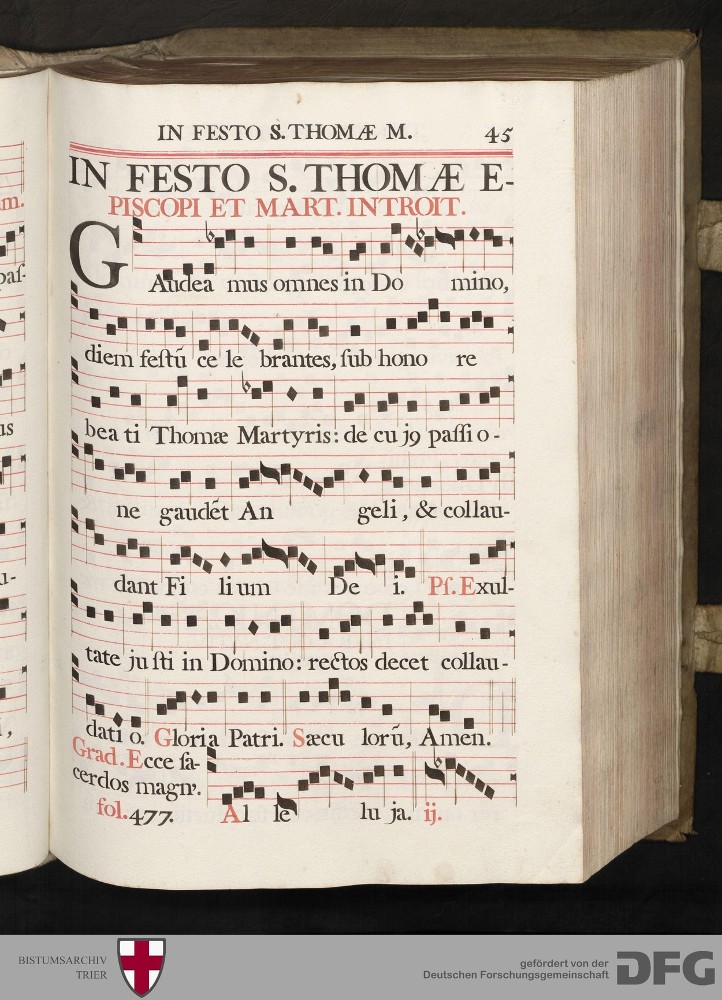 IN FESTO S. THOMÆ M. 45
IN FESTO S. THOMÆ E-
PISCOPI ET MART. INTROIT.
GAudea mus omnes in Do mino,
diem festũ ce le brantes, sub hono re
bea ti Thomæ Martyris: de cu j9 passi o-
ne gaudẽt An geli, & collau-
dant Fi li um De i. Ps. Exul-
tate ju sti in Domino: rectos decet collau-
dati o. Gloria Patri. Sæcu lorũ, Amen.
Grad. Ecce sa-
cerdos magn9.
fol. 477.
Al le lu ja. ij.
am.
pas-
us
u-
BISTUMSARCHIV
TRIER
gefördert von der
Deutschen Forschungsgemeinschaft
DFG